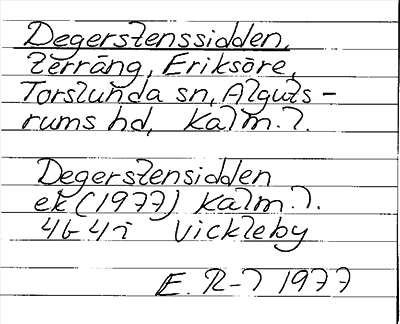 Degerstenssidden,
terräng, Eriksöre,
Torslunda sn, Alguts-
rums hd, Kalm. l.
Degerstensidden
ek (1977) Kalm. l.
4G 4i Vickleby
E. R-l 1977